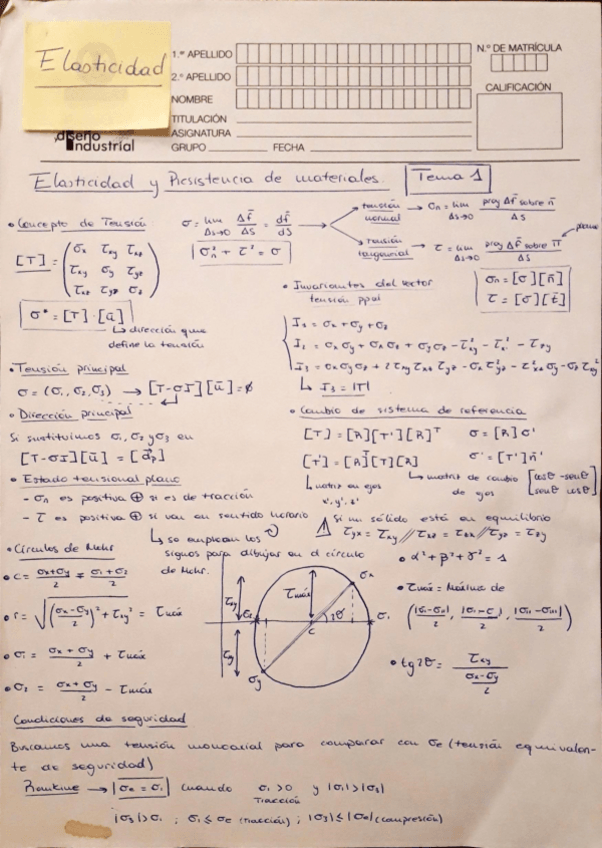 Elasticidad
1.er APELLIDO
2.º APELLIDO
NOMBRE
TITULACIÓN
ASIGNATURA
GRUPO FECHA
N.º DE MATRÍCULA
CALIFICACIÓN
diseño
Industrial
Elasticidad y Resistencia de materiales. Tema 1
• Concepto de Tensión σ = lim Δf̄/ΔS = df̄/dS
Δs→0
|σn² + τ² = σ|
→ tensión normal → σn = lim proy Δf̄ sobre n̄ / ΔS
Δs→0
→ tensión tangencial → τ = lim proy Δf̄ sobre π / ΔS
Δs→0
plano
[T] = (σx τxy τxz
τxy σy τyz
τxz τyz σz)
σn = [σ][n̄]
τ = [σ][t̄]
σ* = [T]·[ū]
↳ dirección que
define la tensión
• Invariantes del vector
tensión ppal
I1 = σx + σy + σz
I2 = σxσy + σxσz + σyσz - τ²xy - τ²xz - τ²zy
I3 = σxσyσz + 2τxyτxzτyz - σxτ²yz - τ²xzσy - σzτ²xy
↳ I3 = |T|
• Tensión principal
σ = (σ1, σ2, σ3) → [T-σI][ū] = ø
• Dirección principal
Si sustituimos σ1, σ2 y σ3 en
[T-σI][ū] = [d̄p]
• Cambio de sistema de referencia
[T] = [R][T'][R]ᵀ σ = [R]σ'
[T'] = [R]ᵀ[T][R] σ' = [T']n̄'
↳ matriz en ejes
x', y', z'
↳ matriz de cambio
de ejes
[cosθ -senθ
senθ cosθ]
• Estado tensional plano
- σn es positiva ⊕ si es de tracción
- τ es positiva ⊕ si va en sentido horario
↳ se emplean los
signos para dibujar en el círculo
de Mohr.
⚠ Si un sólido está en equilibrio
τyx = τxy // τxz = τzx // τyz = τzy
• Círculos de Mohr
• c = σx+σy/2 = σ1+σ2/2
• r = √((σx-σy/2)² + τxy²) = τmáx
• σ1 = σx + σy/2 + τmáx
• σ2 = σx + σy/2 - τmáx
τxy
τmáx
σx
σ1
2θ
c
σy
• α² + β² + γ² = 1
• τmáx = Máxima de
(|σI-σII|/2, |σII-σIII|/2, |σI-σIII|/2)
• tg2θ = τxy / (σx-σy/2)
Condiciones de seguridad
Buscamos una tensión monoaxial para comparar con σe (tensión equivalen-
te de seguridad)
Rankine → |σe = σ1| cuando σ1 > 0 y |σ1| > |σ3|
Tracción
|σ3| > σ1 ; σ1 ≤ σe (tracción) ; |σ3| ≤ |σe| (compresión)